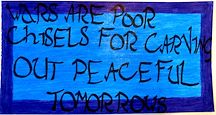 WARS ARE POOR
CHISELS FOR CARVING
OUT PEACEFUL
TOMORROWS